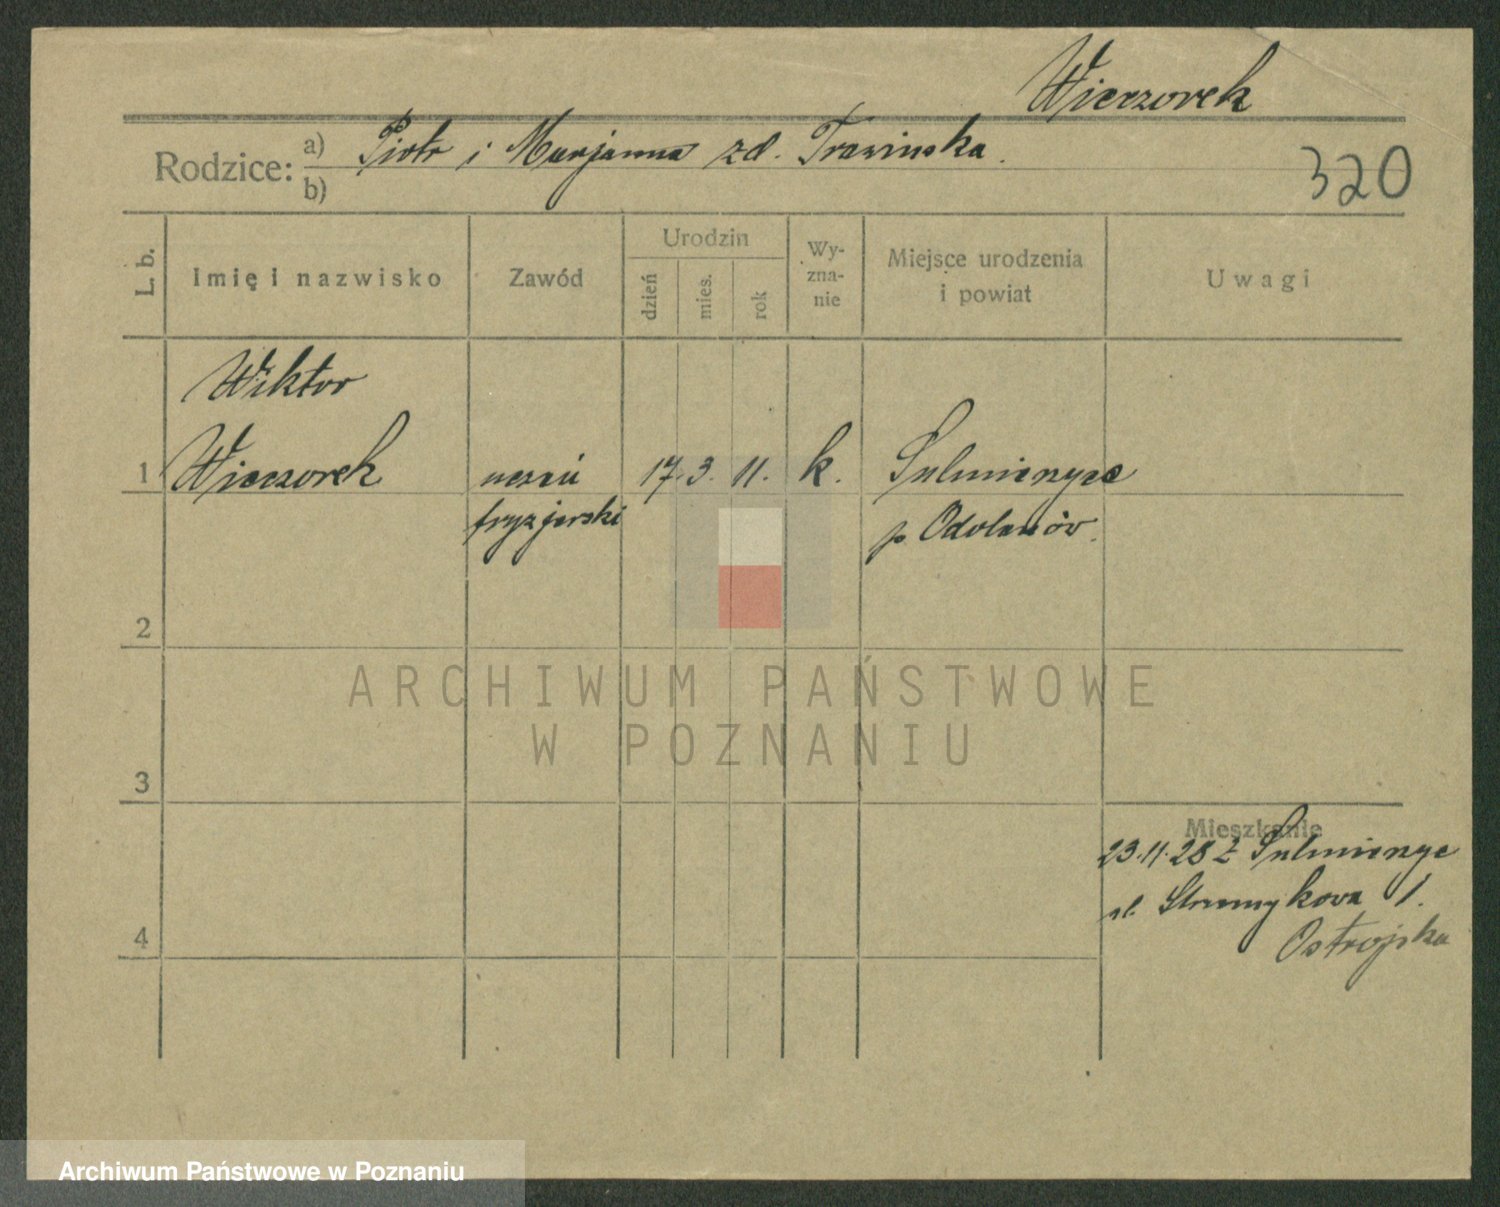 Wieczorek
Rodzice: a) Piotr i Marjanna zd. Trawinska.
b)
320
L. b.
Imię i nazwisko
Zawód
Urodzin
dzień
mies.
rok
Wy-
zna-
nie
Miejsce urodzenia
i powiat
Uwagi
Wiktor
1 Wieczorek uczeń 17. 3. 11. k. Sulmierzyce
fryzjerski p. Odolanów.
2
ARCHIWUM PAŃSTWOWE
W POZNANIU
3
Mieszkanie
23.11.28 z Sulmierzyc
ul. 1.
4
Ostrojska
Archiwum Państwowe w Poznaniu